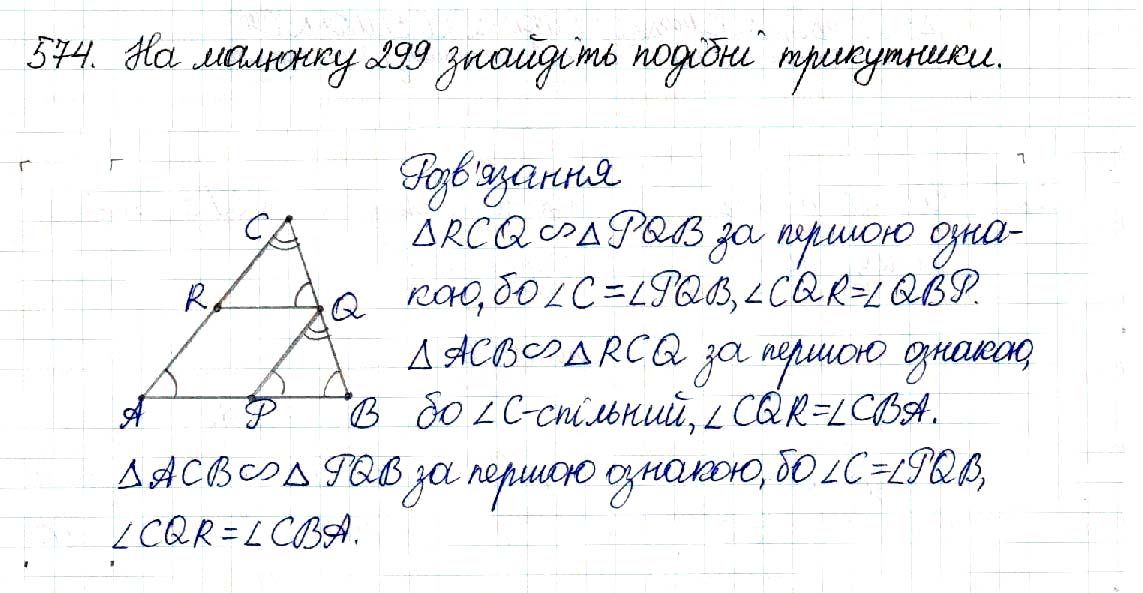 574. На малюнку 299 знайдіть подібні трикутники.
Розв'язання
C
△RCQ ∽ △PQB за першою озна-
R
Q
кою, бо ∠C = ∠PQB, ∠CQR = ∠QBP.
△ACB ∽ △RCQ за першою ознакою,
A
P
B
бо ∠C-спільний, ∠CQR = ∠CBA.
△ACB ∽ △PQB за першою ознакою, бо ∠C = ∠PQB,
∠CQR = ∠CBA.